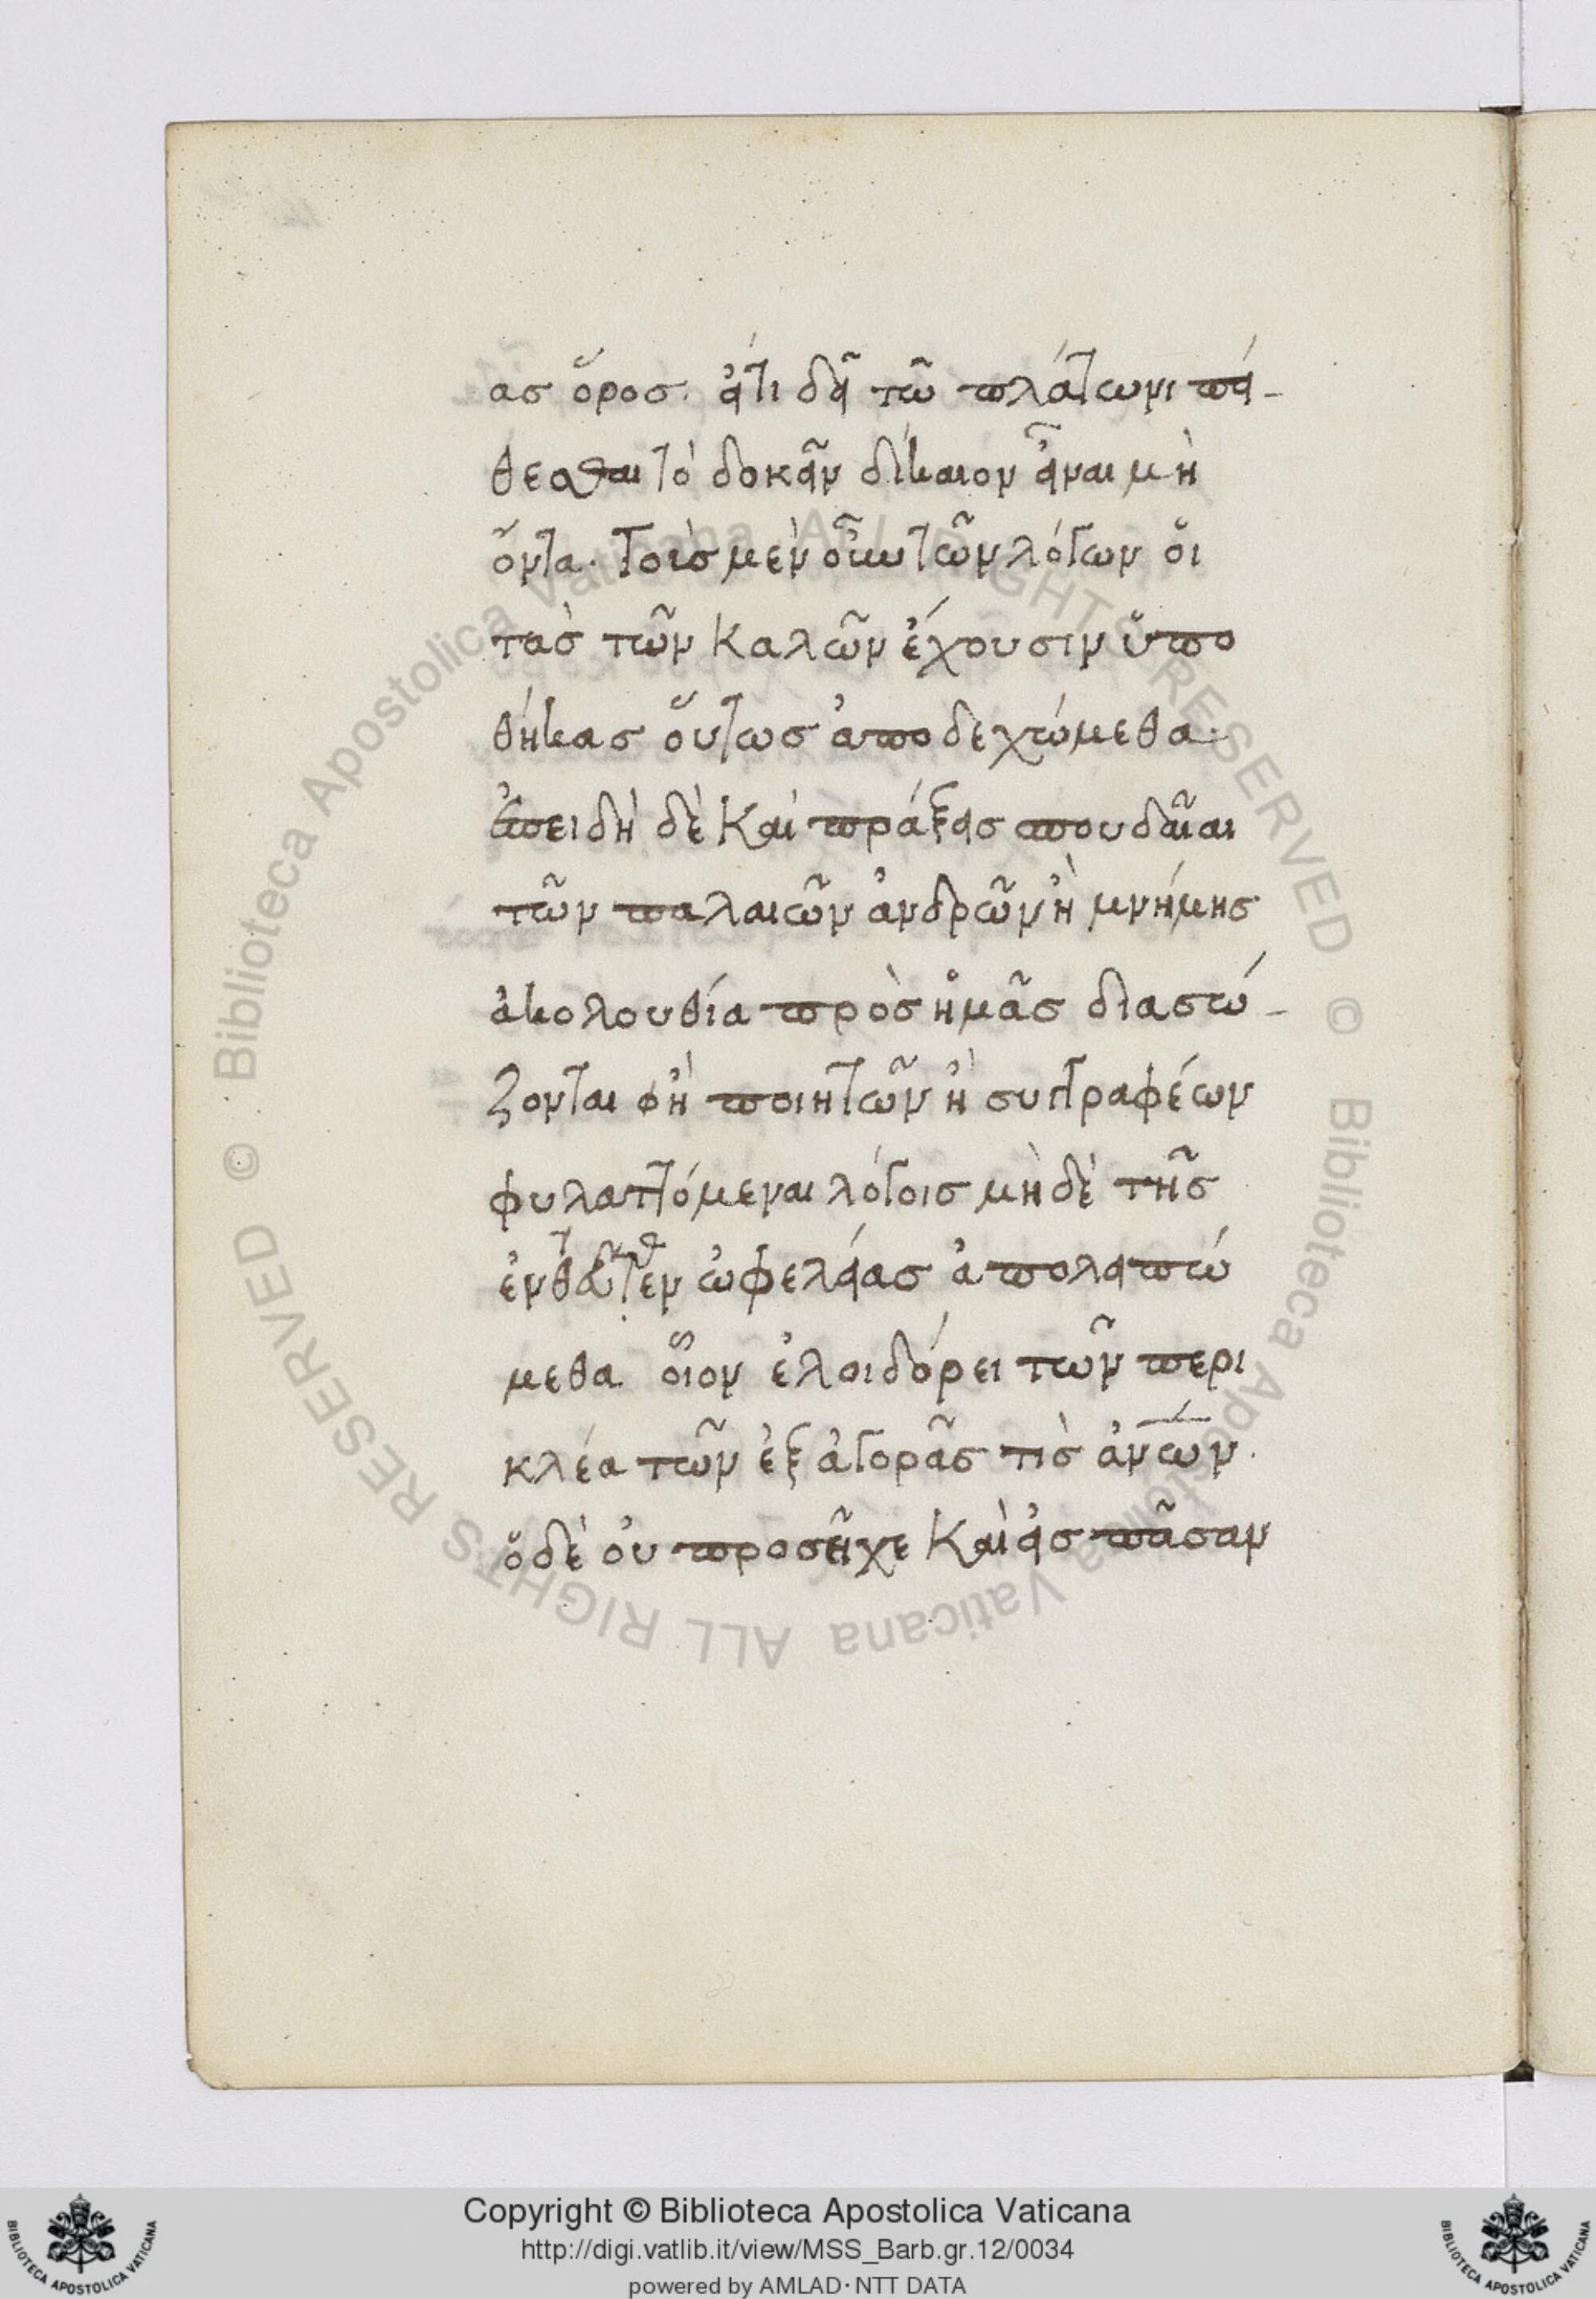 ας ὅρος. εἴτι δεῖ τῶ πλάτωνι πεί-
θεσθαι τὸ δοκεῖν δίκαιον εἶναι μὴ
ὄντα. Τοὺς μὲν οὖν τῶν λόγων οἳ
τὰς τῶν καλῶν ἔχουσιν ὑπο
θήκας οὕτως ἀποδεχώμεθα.
ἐπειδὴ δὲ καὶ πράξεις σπουδαῖαι
τῶν παλαιῶν ἀνδρῶν ἢ μνήμης
ἀκολουθία πρὸς ἡμᾶς διασώ-
ζονται ἢ ποιητῶν ἢ συγγραφέων
φυλαττόμεναι λόγοις μὴδὲ τῆς
ὠφελείας ἀπολειπώ
μεθα οἷον ἐλοιδόρει τῶν περι
κλέα τῶν ἐξ ἀγορᾶς τὶς ἀνῶν.
ὁδὲ οὐ προσεῖχε καὶ εἰς πᾶσαν
Copyright © Biblioteca Apostolica Vaticana
http://digi.vatlib.it/view/MSS_Barb.gr.12/0034
powered by AMLAD·NTT DATA
BIBLIOTECA APOSTOLICA VATICANA
BIBLIOTECA APOSTOLICA VATICANA
© Biblioteca Apostolica Vaticana ALL RIGHTS RESERVED © Biblioteca Apostolica Vaticana ALL RIGHTS RESERVED